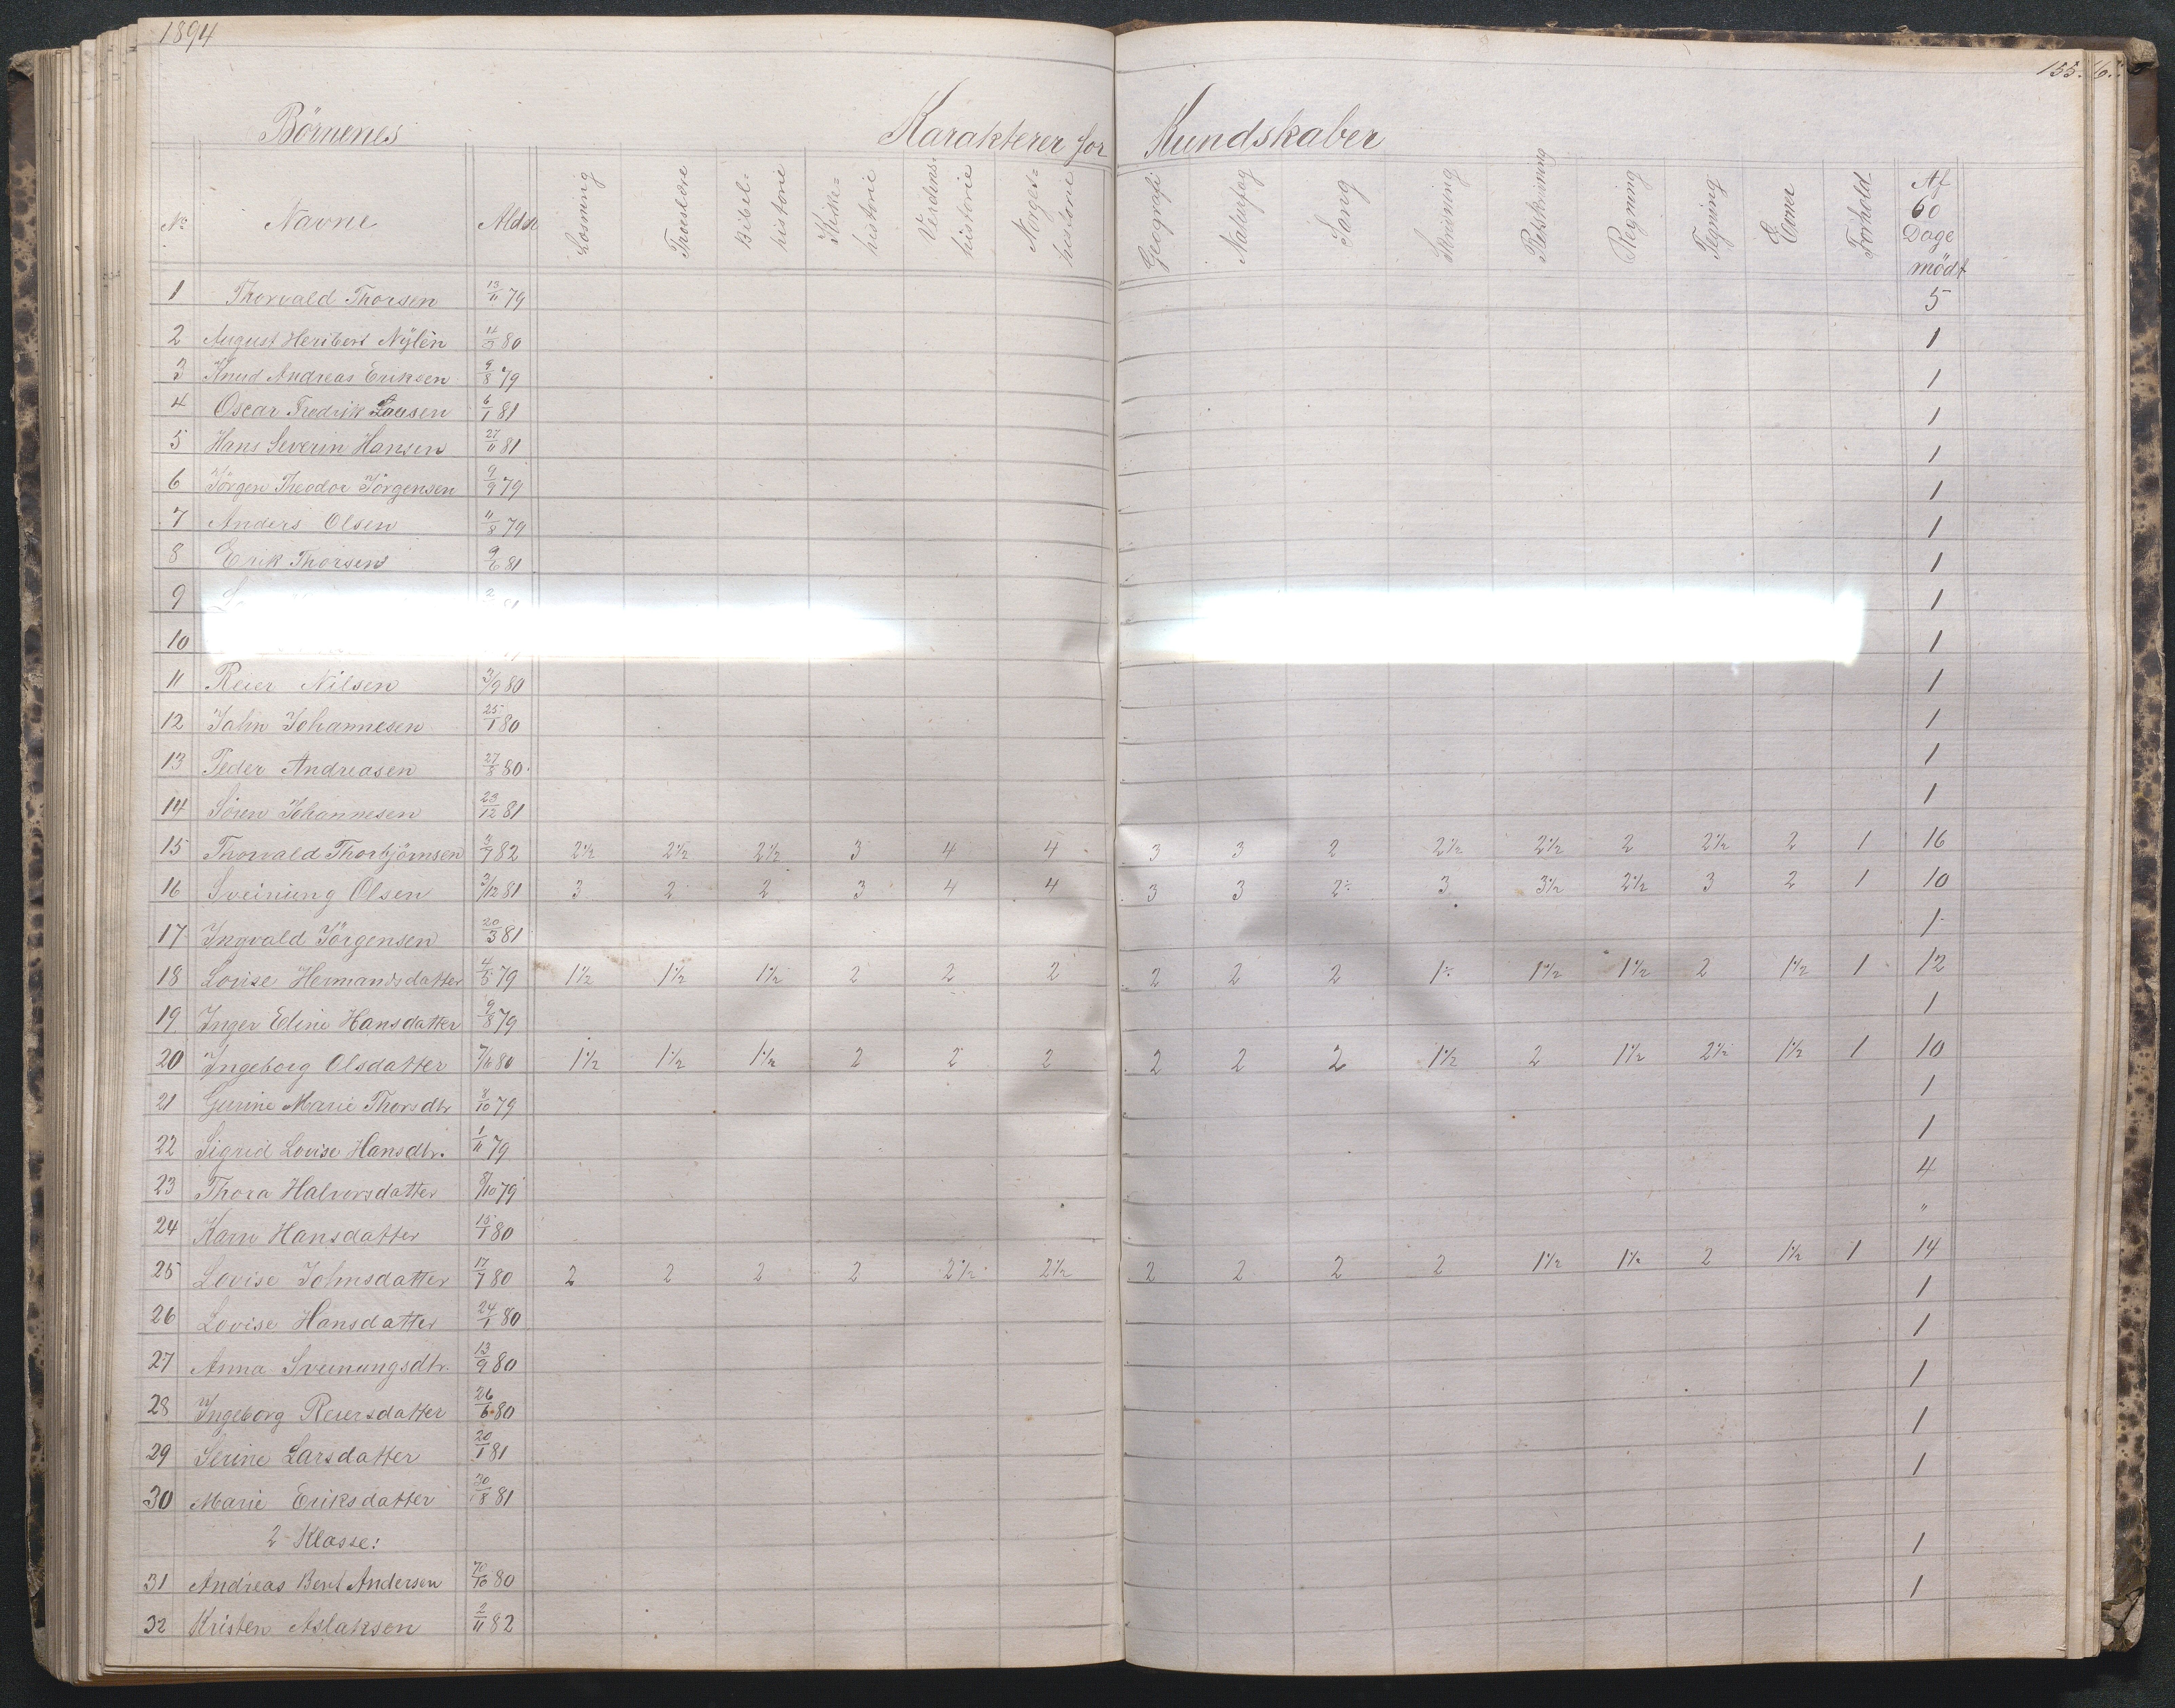 1894
155. 6.
Börnenes Karakterer for Kundskaber
No Navne Alder Læsning Troeslære Bibel=historie Kirke=historie Verdens-historie Norges=historie Geografi Naturfag Sang Skrivning Retskrivning Regning Tegning Evner Forhold Af 60 Dage mödt
1 Thorvald Thorsen 13/11 79 5
2 August Heribert Nylén 80 1
3 Knud Andreas Eriksen 9/8 79 1
4 Oscar Fredrik 6/1 81 1
5 Hans Severin Hansen 27/11 81 1
6 Jörgen Theodor Jörgensen 9/9 79 1
7 Anders Olsen 11/8 79 1
8 Erik Thorsen 9/6 81 1
9 1
10 1
11 Reier Nilsen 3/9 80 1
12 John Johannesen 25/1 80 1
13 Peder Andreasen 27/8 80 1
14 Sören Johannesen 23/12 81 1
15 Thorvald Thorbjörnsen 82 2½ 2½ 2½ 3 4 4 3 3 2 2½ 2½ 2 2½ 2 1 16
16 Sveinung Olsen 3/12 81 3 2 2 3 4 4 3 3 2÷ 3 3½ 2½ 3 2 1 10
17 Ingvald Jörgensen 20/3 81 1
18 Lovise Hermandsdatter 4/5 79 1½ 1½ 1½ 2 2 2 2 2 2 1÷ 1½ 1½ 2 1½ 1 12
19 Inger Eline Hansdatter 9/8 79 1
20 Ingeborg Olsdatter 7/11 80 1½ 1½ 1½ 2 2 2 2 2 2 1½ 2 1½ 2½ 1½ 1 10
21 Gurine Marie Thorsdtr 8/10 79 1
22 Sigrid Lovise Hansdtr. 1/11 79 1
23 Thora Halvorsdatter 8/10 79 4
24 Karn Hansdatter 15/1 80 "
25 Lovise Johnsdatter 17/7 80 2 2 2 2 2½ 2½ 2 2 2 2 1½ 1½ 2 1½ 1 14
26 Lovise Hansdatter 24/1 80 1
27 Anna Sveinungsdtr. 13/9 80 1
28 Ingeborg Reiersdatter 26/6 80 1
29 Serine Larsdatter 20/1 81 1
30 Marie Eriksdatter 30/8 81 1
2 Klasse:
31 Andreas Bent Andersen 80 1
32 Kristen Aslaksen 2/11 82 1